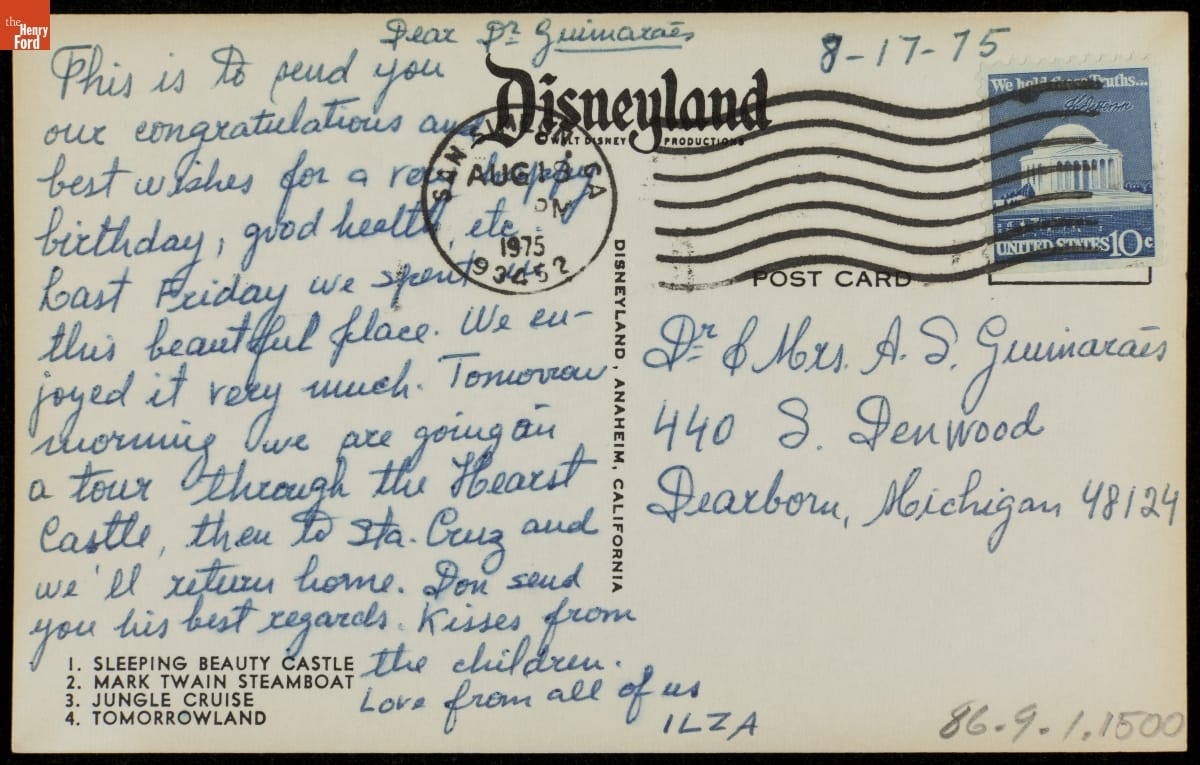 the
Henry
Ford
Dear Dr Guimarães
8-17-75
This is to send you
our congratulations and
best wishes for a very happy
birthday, good health, etc.
Last Friday we spent in
this beautiful place. We en-
joyed it very much. Tomorrow
morning we are going on
a tour through the Hearst
Castle, then to Sta. Cruz and
we'll return home. Don send
you his best regards. Kisses from
the children.
Love from all of us
ILZA
1. SLEEPING BEAUTY CASTLE
2. MARK TWAIN STEAMBOAT
3. JUNGLE CRUISE
4. TOMORROWLAND
Disneyland
WALT DISNEY PRODUCTIONS
AUG 18
PM
1975
DISNEYLAND, ANAHEIM, CALIFORNIA
We hold these Truths...
UNITED STATES 10c
POST CARD
Dr & Mrs. A. S. Guimarães
440 S. Denwood
Dearborn, Michigan 48124
86.9.1.1500